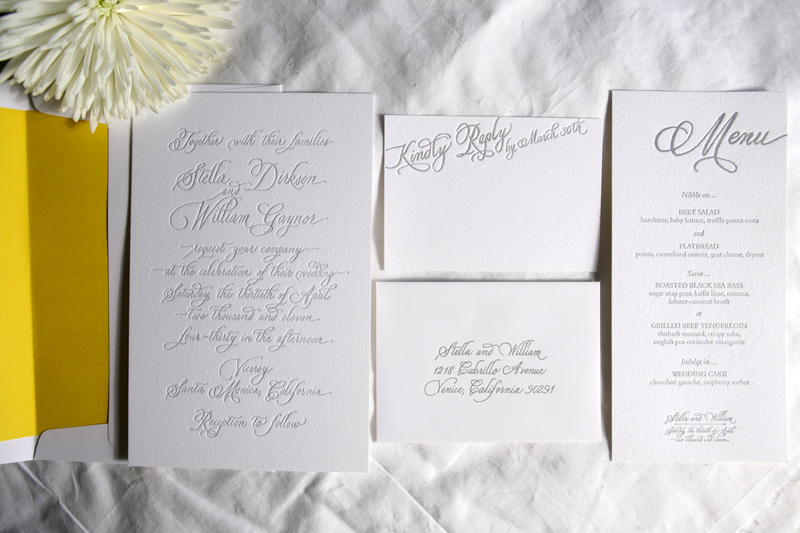 Together with their families
Stella Dirksen
and
William Gaynor
request your company
at the celebration of their wedding
Saturday the thirtieth of April
two thousand and eleven
four-thirty in the afternoon
Viceroy
Santa Monica, California
Reception to follow
Kindly Reply by March 30th
Stella and William
1218 Cabrillo Avenue
Venice, California 90291
Menu
Nibble on...
BEET SALAD
hazelnuts, baby lettuce, truffle panna cotta
and
FLATBREAD
potato, caramelized onions, goat cheese, thyme
Savor...
ROASTED BLACK SEA BASS
sugar snap peas, kaffir lime, mizuna,
lobster-coconut broth
or
GRILLED BEEF TENDERLOIN
rhubarb mustard, crispy soba,
english pea-coriander vinaigrette
Indulge in...
WEDDING CAKE
chocolate ganache, raspberry sorbet
Stella and William
Saturday the thirtieth of April
two thousand and eleven